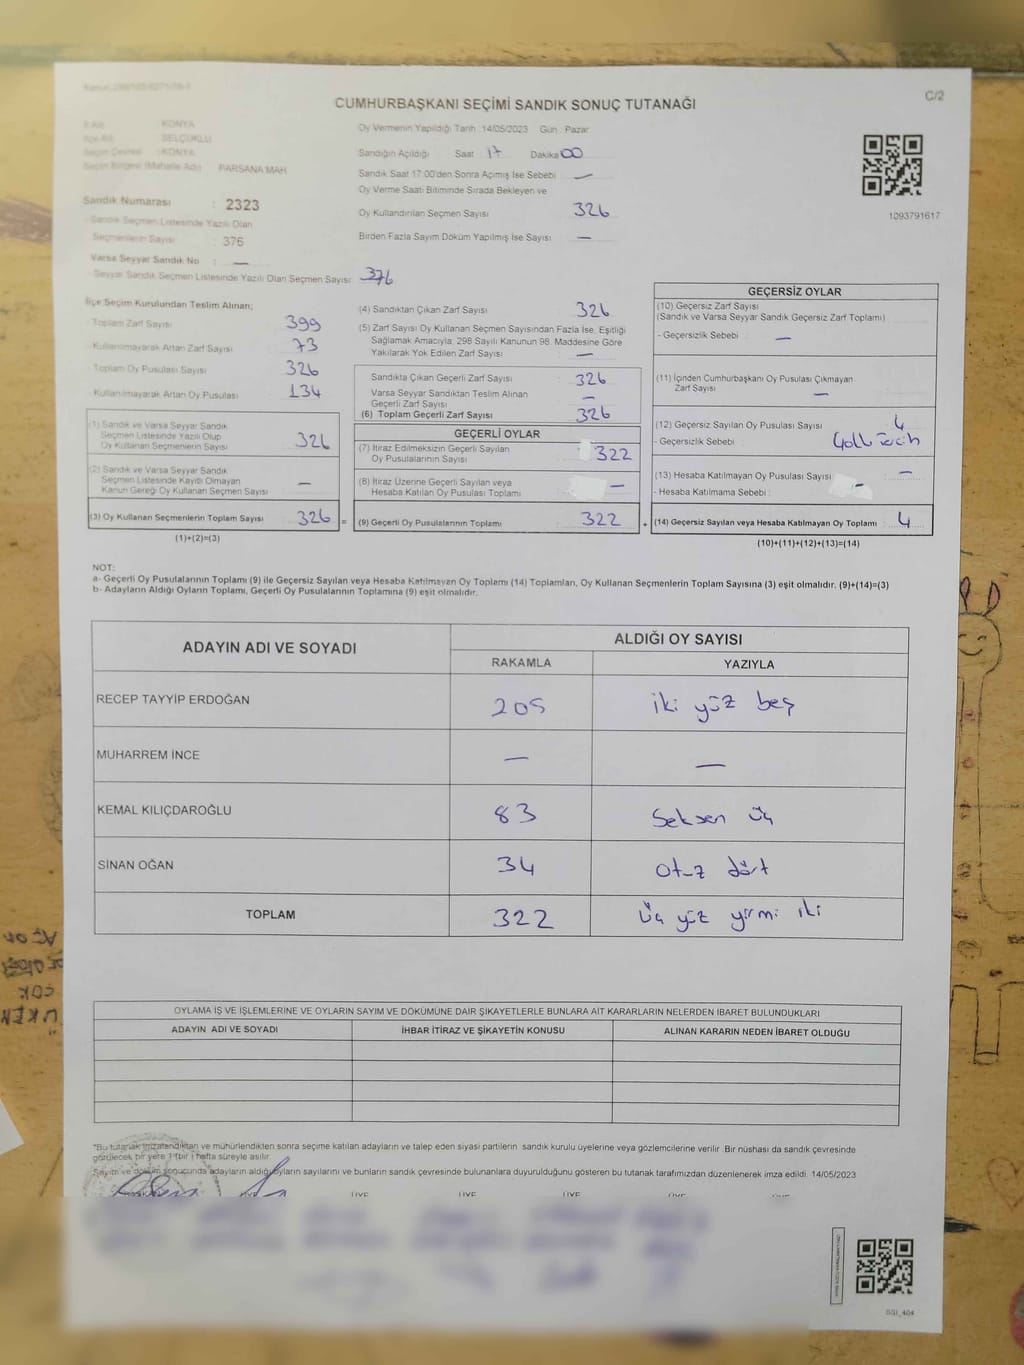 C/2
CUMHURBAŞKANI SEÇİMİ SANDIK SONUÇ TUTANAĞI
KONYA
SELÇUKLU
KONYA
Seçim Bölgesi (Mahalle Adı) PARSANA MAH
Sandık Numarası : 2323
Sandık Seçmen Listesinde Yazılı Olan
Seçmenlerin Sayısı : 376
Varsa Seyyar Sandık No : —
Seyyar Sandık Seçmen Listesinde Yazılı Olan Seçmen Sayısı: 376
Oy Vermenin Yapıldığı Tarih :14/05/2023 Gün : Pazar
Sandığın Açıldığı Saat 17 Dakika 00
Sandık Saat 17:00'den Sonra Açımış İse Sebebi : —
Oy Verme Saati Bitiminde Sırada Bekleyen ve
Oy Kullandırılan Seçmen Sayısı 326
Birden Fazla Sayım Döküm Yapılmış İse Sayısı : —
1093791617
İlçe Seçim Kurulundan Teslim Alınan;
Toplam Zarf Sayısı 399
Kullanılmayarak Artan Zarf Sayısı 73
Toplam Oy Pusulası Sayısı 326
Kullanılmayarak Artan Oy Pusulası 134
(1) Sandık ve Varsa Seyyar Sandık
Seçmen Listesinde Yazılı Olup
Oy Kullanan Seçmenlerin Sayısı 326
(2) Sandık ve Varsa Seyyar Sandık
Seçmen Listesinde Kaydı Olmayan
Kanun Gereği Oy Kullanan Seçmen Sayısı —
(3) Oy Kullanan Seçmenlerin Toplam Sayısı 326 =
(1)+(2)=(3)
(4) Sandıktan Çıkan Zarf Sayısı 326
(5) Zarf Sayısı Oy Kullanan Seçmen Sayısından Fazla İse, Eşitliği
Sağlamak Amacıyla, 298 Sayılı Kanunun 98. Maddesine Göre
Yakılarak Yok Edilen Zarf Sayısı —
Sandıkta Çıkan Geçerli Zarf Sayısı 326
Varsa Seyyar Sandıktan Teslim Alınan
Geçerli Zarf Sayısı —
(6) Toplam Geçerli Zarf Sayısı 326
GEÇERLİ OYLAR
(7) İtiraz Edilmeksizin Geçerli Sayılan
Oy Pusulalarının Sayısı 322
(8) İtiraz Üzerine Geçerli Sayılan veya
Hesaba Katılan Oy Pusulası Toplamı —
(9) Geçerli Oy Pusulalarının Toplamı 322 +
GEÇERSİZ OYLAR
(10) Geçersiz Zarf Sayısı
(Sandık ve Varsa Seyyar Sandık Geçersiz Zarf Toplamı)
- Geçersizlik Sebebi : —
(11) İçinden Cumhurbaşkanı Oy Pusulası Çıkmayan
Zarf Sayısı —
(12) Geçersiz Sayılan Oy Pusulası Sayısı 4
- Geçersizlik Sebebi
(13) Hesaba Katılmayan Oy Pusulası Sayısı —
- Hesaba Katılmama Sebebi : —
(14) Geçersiz Sayılan veya Hesaba Katılmayan Oy Toplamı : 4
(10)+(11)+(12)+(13)=(14)
NOT:
a- Geçerli Oy Pusulalarının Toplamı (9) ile Geçersiz Sayılan veya Hesaba Katılmayan Oy Toplamı (14) Toplamları, Oy Kullanan Seçmenlerin Toplam Sayısına (3) eşit olmalıdır. (9)+(14)=(3)
b- Adayların Aldığı Oyların Toplamı, Geçerli Oy Pusulalarının Toplamına (9) eşit olmalıdır.
ADAYIN ADI VE SOYADI ALDIĞI OY SAYISI
RAKAMLA YAZIYLA
RECEP TAYYİP ERDOĞAN 205 iki yüz beş
MUHARREM İNCE — —
KEMAL KILIÇDAROĞLU 83 Seksen üç
SİNAN OĞAN 34 otuz dört
TOPLAM 322 üç yüz yirmi iki
OYLAMA İŞ VE İŞLEMLERİNE VE OYLARIN SAYIM VE DÖKÜMÜNE DAİR ŞİKAYETLERLE BUNLARA AİT KARARLARIN NELERDEN İBARET BULUNDUKLARI
ADAYIN ADI VE SOYADI İHBAR İTİRAZ VE ŞİKAYETİN KONUSU ALINAN KARARIN NEDEN İBARET OLDUĞU
"Bu tutanak imzalandıktan ve mühürlendikten sonra seçime katılan adayların ve talep eden siyasi partilerin sandık kurulu üyelerine veya gözlemcilerine verilir. Bir nüshası da sandık çevresinde
görülecek bir yere 1 (bir ) hafta süreyle asılır.
Sayım ve döküm sonucunda adayların aldığı oyların sayılarını ve bunların sandık çevresinde bulunanlara duyurulduğunu gösteren bu tutanak tarafımızdan düzenlenerek imza edildi. 14/05/2023
ÜYE ÜYE ÜYE ÜYE ÜYE